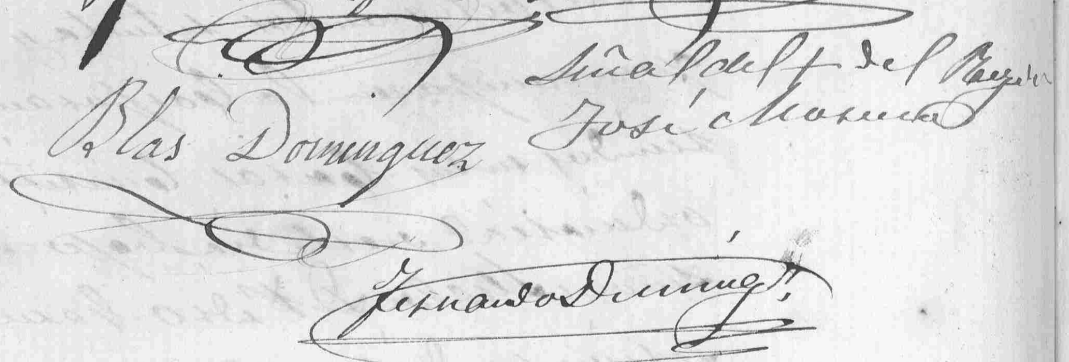 Siñal del + del Regidor
José Moreno
Blas Dominguez
Fernando Domingz.